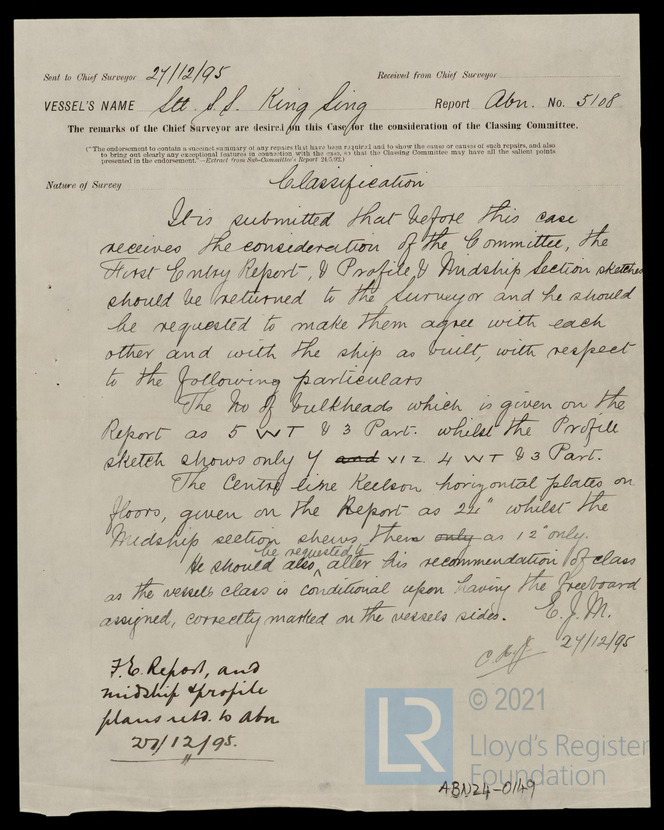 Sent to Chief Surveyor 27/12/95 Received from Chief Surveyor
VESSEL'S NAME Stl. S.S. King Sing Report Abn. No. 5108
The remarks of the Chief Surveyor are desired on this Case for the consideration of the Classing Committee.
("The endorsement to contain a succinct summary of any repairs that have been required and to show the cause or causes of such repairs, and also
to bring out clearly any exceptional features in connection with the case, so that the Classing Committee may have all the salient points
presented in the endorsement."—Extract from Sub-Committee's Report 24/5/92.)
Nature of Survey Classification
It is submitted that before this case
receives the consideration of the Committee, the
First Entry Report, & Profile & Midship Section sketches
should be returned to the Surveyor and he should
be requested to make them agree with each
other and with the ship as built, with respect
to the following particulars
The No of bulkheads which is given on the
Report as 5 WT & 3 Part. whilst the Profile
sketch shows only 7 and viz. 4 WT & 3 Part.
The Centre line Keelson horizontal plates on
floors, given on the Report as 24" whilst the
Midship section shews them only as 12" only.
He should also, be requested to alter his recommendation of class
as the vessels class is conditional upon having the Freeboard
assigned, correctly marked on the vessels sides. E.J.M.
27/12/95
F.E. Report, and
midship & profile
plans retd. to Abn
27/12/95.
LR
© 2021
Lloyd's Register
Foundation
ABN24-0149